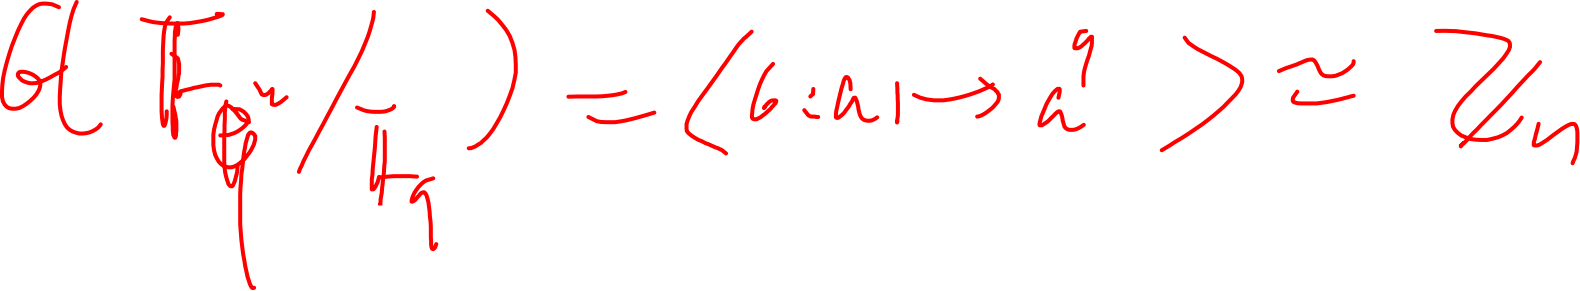 G(𝔽_{q^n}/𝔽_q) = ⟨σ: a ↦ a^q⟩ ≃ ℤ_n